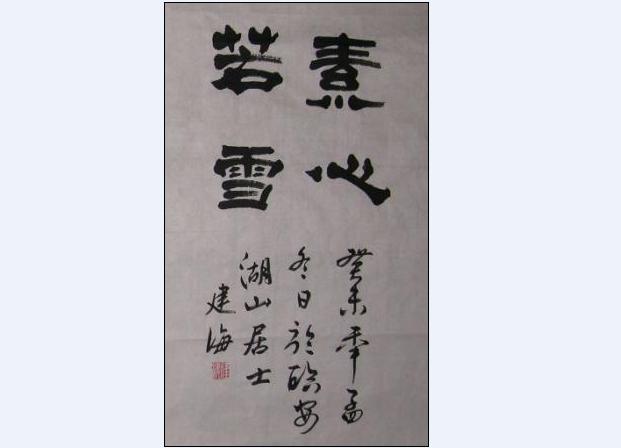 素心
若雪
癸未年孟
冬日於臨安
湖山居士
建海